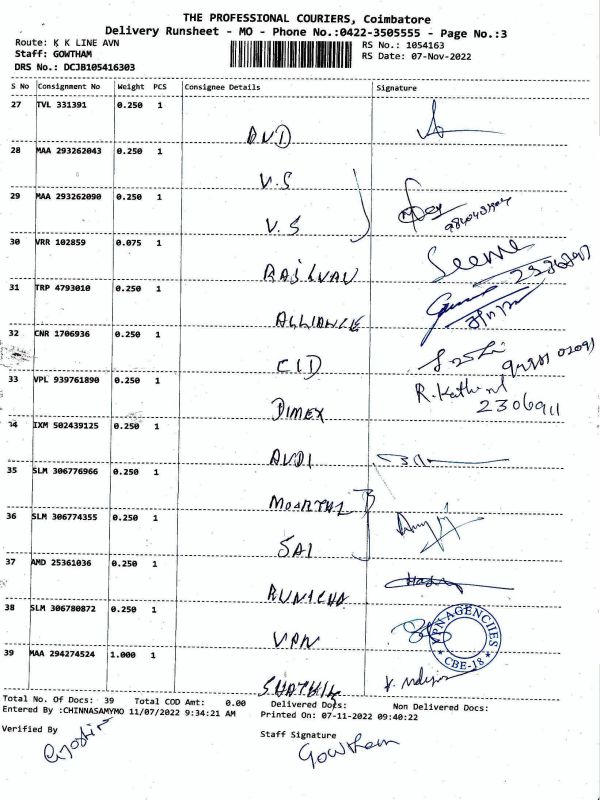 THE PROFESSIONAL COURIERS, Coimbatore
Delivery Runsheet - MO - Phone No.:0422-3505555 - Page No.:3
Route: K K LINE AVN
Staff: GOWTHAM
DRS No.: DCJB105416303
RS No.: 1054163
RS Date: 07-Nov-2022
S No Consignment No Weight PCS Consignee Details Signature
27 TVL 331391 0.250 1
28 MAA 293262043 0.250 1
V.S
29 MAA 293262090 0.250 1
V.S
30 VRR 102859 0.075 1
RAILWAY Seeme
31 TRP 4793010 0.250 1
ALLIANCE
32 CNR 1706936 0.250 1
CID
33 VPL 939761890 0.250 1
DIMEX R. Kathirvel
2306911
34 IXM 502439125 0.250 1
AUDI
35 SLM 306776966 0.250 1
36 SLM 306774355 0.250 1
SAI
37 AMD 25361036 0.250 1
38 SLM 306780872 0.250 1
VPN
VPN AGENCIES
CBE-18
39 MAA 294274524 1.000 1
Total No. Of Docs: 39 Total COD Amt: 0.00 Delivered Docs: Non Delivered Docs:
Entered By :CHINNASAMYMO 11/07/2022 9:34:21 AM Printed On: 07-11-2022 09:40:22
Verified By Staff Signature
Gowtham